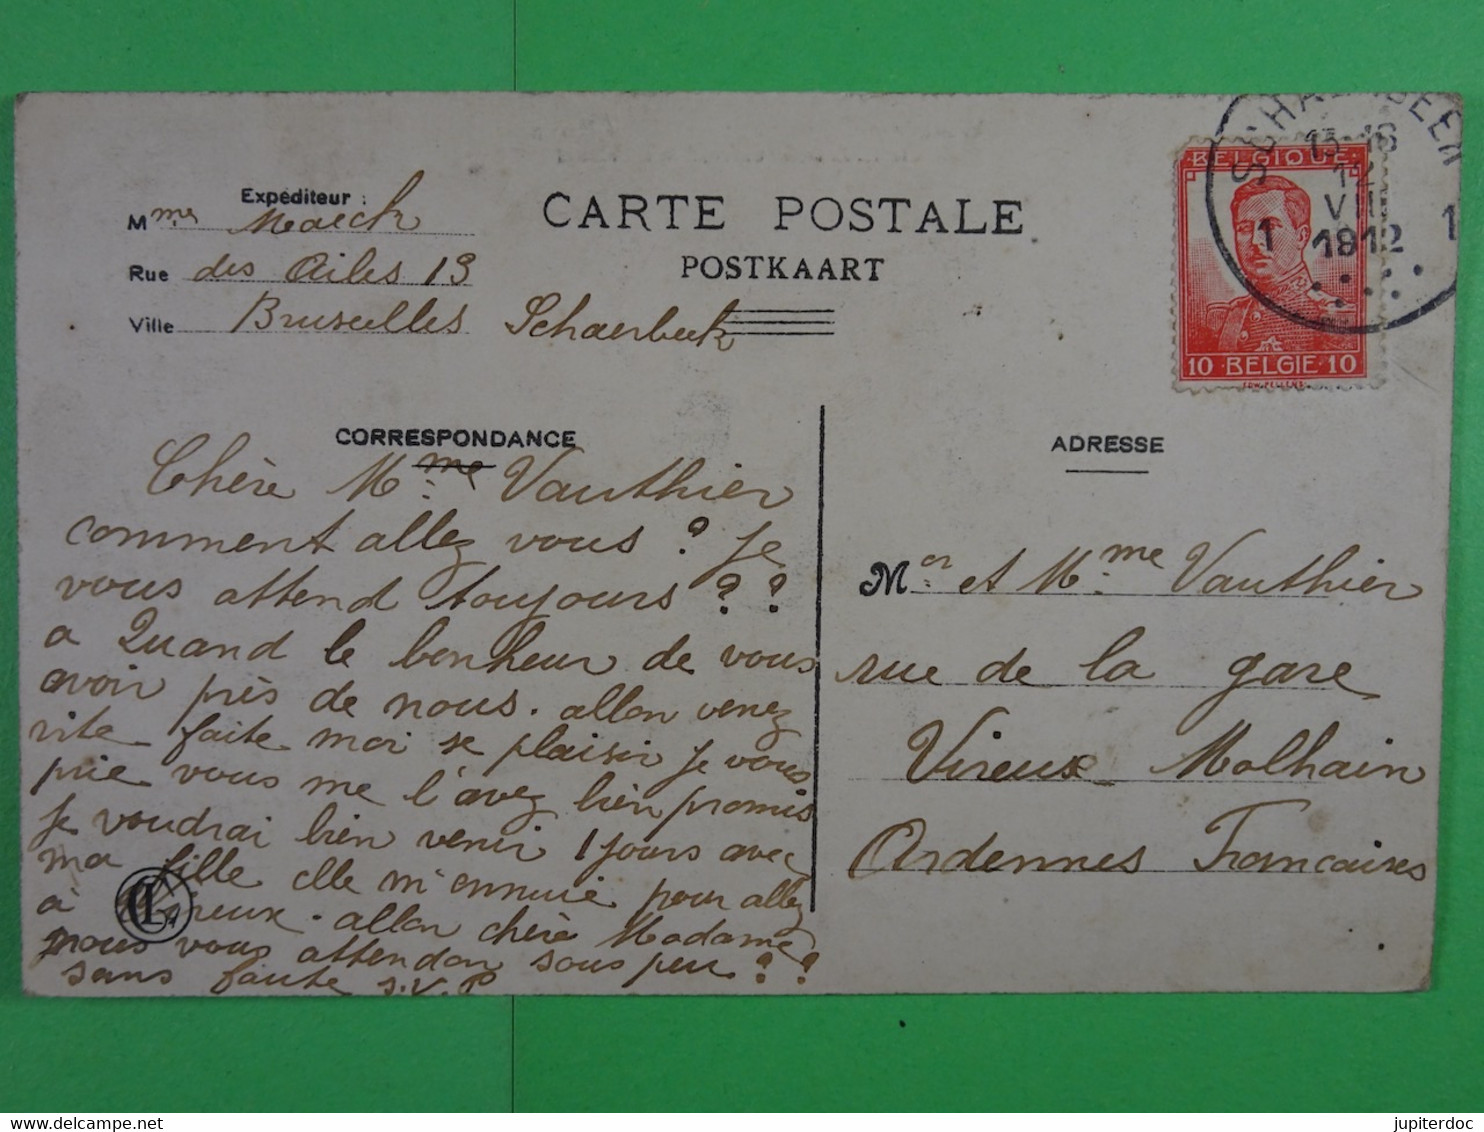 Expéditeur :
Mme Maeck
Rue des Ailes 13
Ville Bruxelles Schaerbeek
CARTE POSTALE
POSTKAART
SCHAERBEEK
1 1
VII
1912
BELGIQUE
10 BELGIE 10
CORRESPONDANCE
Chère Mme Vauthier
comment allez vous ? Je
vous attend toujours ? ?
a Quand le bonheur de vous
avoir près de nous. allon venez
vite faite moi se plaisir je vous
prie vous me l'avez bien promis
je voudrai bien venir 1 jours avec
ma fille elle m'ennuie pour allez
à Vireux. allon chère Madame
nous vous attendon sous peu ? ?
sans faute s.v.P
CL
ADRESSE
Mor et Mme Vauthier
rue de la gare
Vireux Molhain
Ardennes Francaises
jupiterdoc